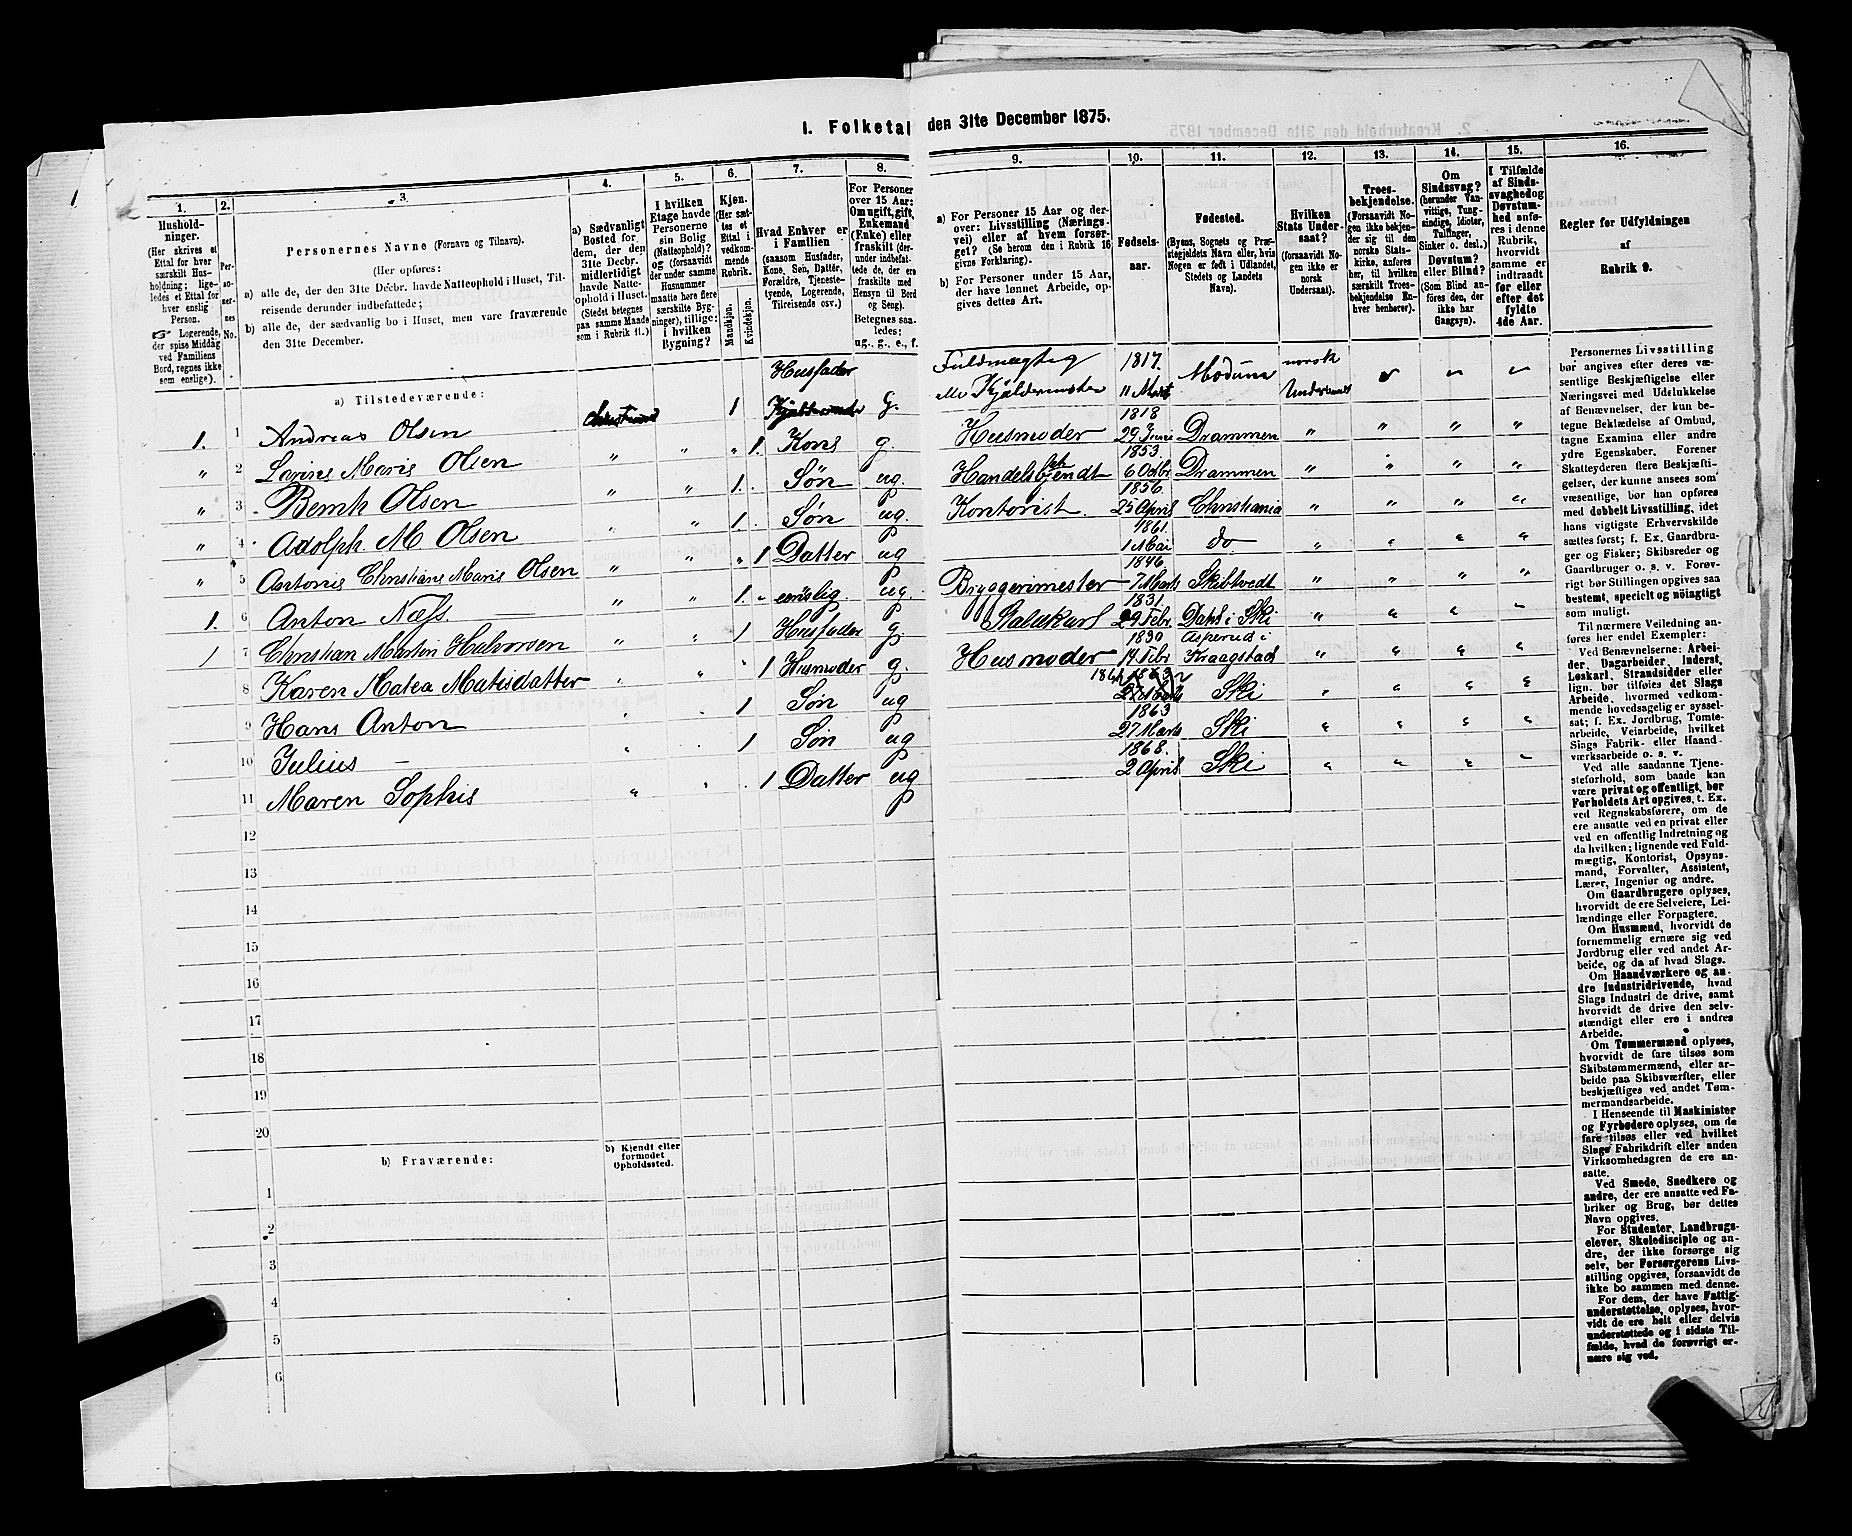 1. Folketal den 31te December 1875.
1. 2. 3. 4. 5. 6. 7. 8. 9. 10. 11. 12. 13. 14. 15. 16.
Husholdninger.
(Her skrives et
Ettal for hver
særskilt Husholdning;
ligeledes et Ettal for
hver enslig
Person.
Logerende,
der spise Middag
ved Familiens
Bord, regnes ikke
som enslige).
Personernes No.
Personernes Navne (Fornavn og Tilnavn).
(Her opføres:
a) alle de, der den 31te Decbr. havde Natteophold i Huset, Tilreisende
derunder indbefattede;
b) alle de, der sædvanlig bo i Huset, men vare fraværende
den 31te December.
a) Sædvanligt
Bosted for
dem, der den
31te Decbr.
midlertidigt
havde Natteophold
i Huset.
(Stedet betegnes
paa samme Maade
som i Rubrik 11.)
I hvilken
Etage havde
Personerne
sin Bolig
(Natteophold)?
og (forsaavidt
der under samme
Husnummer
maatte høre flere
særskilte Bygninger),
tillige:
i hvilken
Bygning?
Kjøn.
(Her sættes
et
Ettal i
vedkommende
Rubrik.
Mandkjøn.
Kvindekjøn.
Hvad Enhver er
i Familien
(saasom Husfader,
Kone, Søn, Datter,
Forældre, Tjenestetyende,
Logerende,
Tilreisende osv.)
For Personer
over 15 Aar:
Om ugift, gift,
Enkemand
(Enke) eller
fraskilt (derunder
indbefattede
de, der ere
fraskilte med
Hensyn til Bord
og Seng).
Betegnes saaledes:
ug., g., e., f.
a) For Personer 15 Aar og derover:
Livsstilling (Næringsvei)
eller af hvem forsørget?
(Se herom den i Rubrik 16
givne Forklaring).
b) For Personer under 15 Aar,
der have lønnet Arbeide, opgives
dettes Art.
Fødselsaar.
Fødested.
(Byens, Sognets og Præstegjeldets
Navn eller, hvis
Nogen er født i Udlandet,
Stedets og Landets
Navn).
Hvilken
Stats Undersaat?
(forsaavidt Nogen
ikke er
norsk
Undersaat).
Troesbekjendelse.
(Forsaavidt Nogen
ikke bekjender
sig til den
norske Statskirke,
anføres
her, til hvilken
særskilt Troesbekjendelse
Enhver
henhører).
Om
Sindssvag?
(herunder Vanvittige,
Tungsindige,
Idioter,
Tullinger,
Sinker o. desl.)
Døvstum?
eller Blind?
(Som Blind anføres
den, der
ikke har
Gangsyn).
I Tilfælde
af Sindssvaghed
og
Døvstumhed
anføres
i denne
Rubrik,
hvorvidt
samme er
indtraadt
før eller
efter det
fyldte
4de Aar.
Regler for Udfyldningen
af
Rubrik 9.
a) Tilstedeværende:
1. 1 Andreas Olsen 1 Husfader g. Fuldmægtig Kjældermester 1817. 11 Marts Modum norsk Undersaat
" 2 Lovine Marie Olsen " " " 1. Kone g. Husmoder 1818 29 Juni Drammen " " " "
" 3 Bernth Olsen " " 1. Søn ug. Handelsbetjendt 1853. 6 Octbr Drammen " " " "
" 4 Adolph M Olsen " " 1. Søn ug. Kontorist. 1856. 25 April Christiania " " " "
" 5 Antonie Christiane Marie Olsen " " " 1 Datter ug 1861. 1 Mai do " " " "
1. 6 Anton Næss — " " 1. " enslig ug. Bryggerimester 1846 7 Marts Skibtvedt " " " "
1 7 Christian Martin Halvorsen " " 1 Husfader g. Staldkarl 1831. 29 Febr. Dahl i Ski " " " "
8 Karen Matea Matisdatter " " 1 Husmoder g. Husmoder 1830 14 Febr Asperud i Kraagstad " " " "
9 Hans Anton 1 Søn ug Ski " " " "
10 Julius — 1 Søn ug 1863 27 Marts Ski " " " "
11 Maren Sophie " " 1 Datter ug 1868. 2 April Ski " " " "
12
13
14
15
16
17
18
19
20
b) Fraværende:
b) Kjendt eller
formodet
Opholdssted.
1
2
3
4
5
6
Personernes Livsstilling
bør angives efter deres væsentlige
Beskjæftigelse eller
Næringsvei med Udelukkelse
af Benævnelser, der kun betegne
Beklædelse af Ombud,
tagne Examina eller andre
ydre Egenskaber. Forener
Skatteyderen flere Beskjæftigelser,
der kunne ansees som
væsentlige, bør han opføres
med dobbelt Livsstilling, idet
hans vigtigste Erhvervskilde
sættes først; f. Ex. Gaardbruger
og Fisker; Skibsreder og
Gaardbruger o. s. v. Forøvrigt
bør Stillingen opgives saa
bestemt, specielt og nøiagtigt
som muligt.
Til nærmere Veiledning anføres
her endel Exempler:
Ved Benævnelserne: Arbeider,
Dagarbeider, Inderst,
Løskarl, Strandsidder eller
lign. bør tilføies det Slags
Arbeide, hvormed vedkommende
hovedsagelig er sysselsat;
f. Ex. Jordbrug, Tomtearbeide,
Veiarbeide, hvilket
Slags Fabrik- eller Haandværksarbeide
o. s. v.
Ved alle saadanne Tjenesteforhold,
som baade kan
være privat og offentlig, bør
Forholdets Art opgives, t. Ex.
ved Regnskabsførere, om de
ere ansatte ved en privat eller
ved en offentlig Indretning og
da hvilken; lignende ved Fuldmægtig,
Kontorist, Opsynsmand,
Forvalter, Assistent,
Lærer, Ingeniør og andre.
Om Gaardbrugere oplyses,
hvorvidt de ere Selveiere, Leilændinge
eller Forpagtere.
Om Husmænd, hvorvidt de
fornemmelig ernære sig ved
Jordbrug eller ved andet Arbeide,
og da af hvad Slags.
Om Haandværkere og andre
Industridrivende, hvad
Slags Industri de drive, samt
hvorvidt de drive den selvstændigt
eller ere i andres
Arbeide.
Om Tømmermænd oplyses,
hvorvidt de fare tilsøs som
Skibstømmermænd, eller arbeide
paa Skibsværfter, eller
beskjæftiges ved andet Tømmermandsarbeide.
I Henseende til Maskinister
og Fyrbødere oplyses, om de
fare tilsøs eller ved hvilket
Slags Fabrikdrift eller anden
Virksomhedsgren de ere ansatte.
Ved Smede, Snedkere og
andre, der ere ansatte ved Fabriker
og Brug, bør dettes
Navn opgives.
For Studenter, Landbrugselever,
Skoledisciple og andre,
der ikke forsørge sig
selv, bør Forsørgerens Livsstilling
opgives, forsaavidt de
ikke bo sammen med denne.
For dem, der have Fattigunderstøttelse,
oplyses, hvorvidt
de ere helt eller delvis
understøttede og i sidste Tilfælde,
hvad de forøvrigt ernære
sig ved.